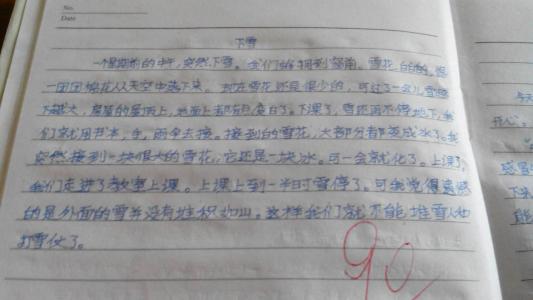 No.
Date
下雪
一個期的中午,突然下雪。我们都拥到窗前。雪花白的,像
一团团棉花从天空中落下来。现在雪花还是很少的,可过了一会儿雪越
下越大,屋的屋顶上,地面上都变白了。下课了,雪还再不停地下,我
们就用书本,手,雨伞去接。接到的雪花,大部分都变成冰了。我
突然接到一块很大的雪花,它还是一块冰。可一会就化了。上课了,
我们走进了教室上课。上课上到一半时雪停了。可我觉得遗憾
的是外面的雪并没有堆积如山。这样我们就不能堆雪人和
打雪仗了。
90
今天
开心
感
下